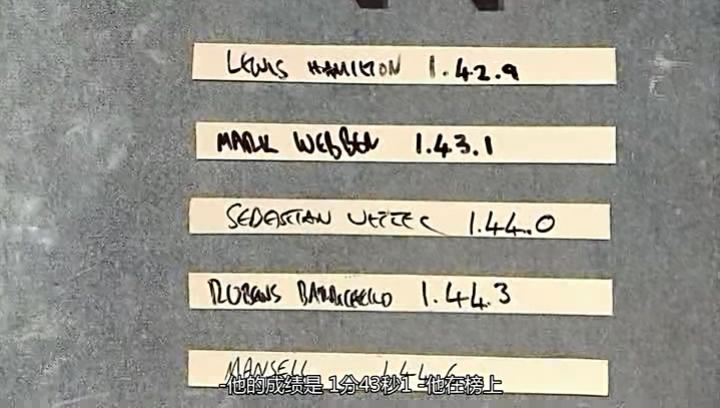 LEWIS HAMILTON 1.42.9
MARK WEBBER 1.43.1
SEBASTIAN VETTEL 1.44.0
RUBENS BARRICHELLO 1.44.3
MANSELL 1.44.6
-他的成绩是 1分43秒1 -他在榜上